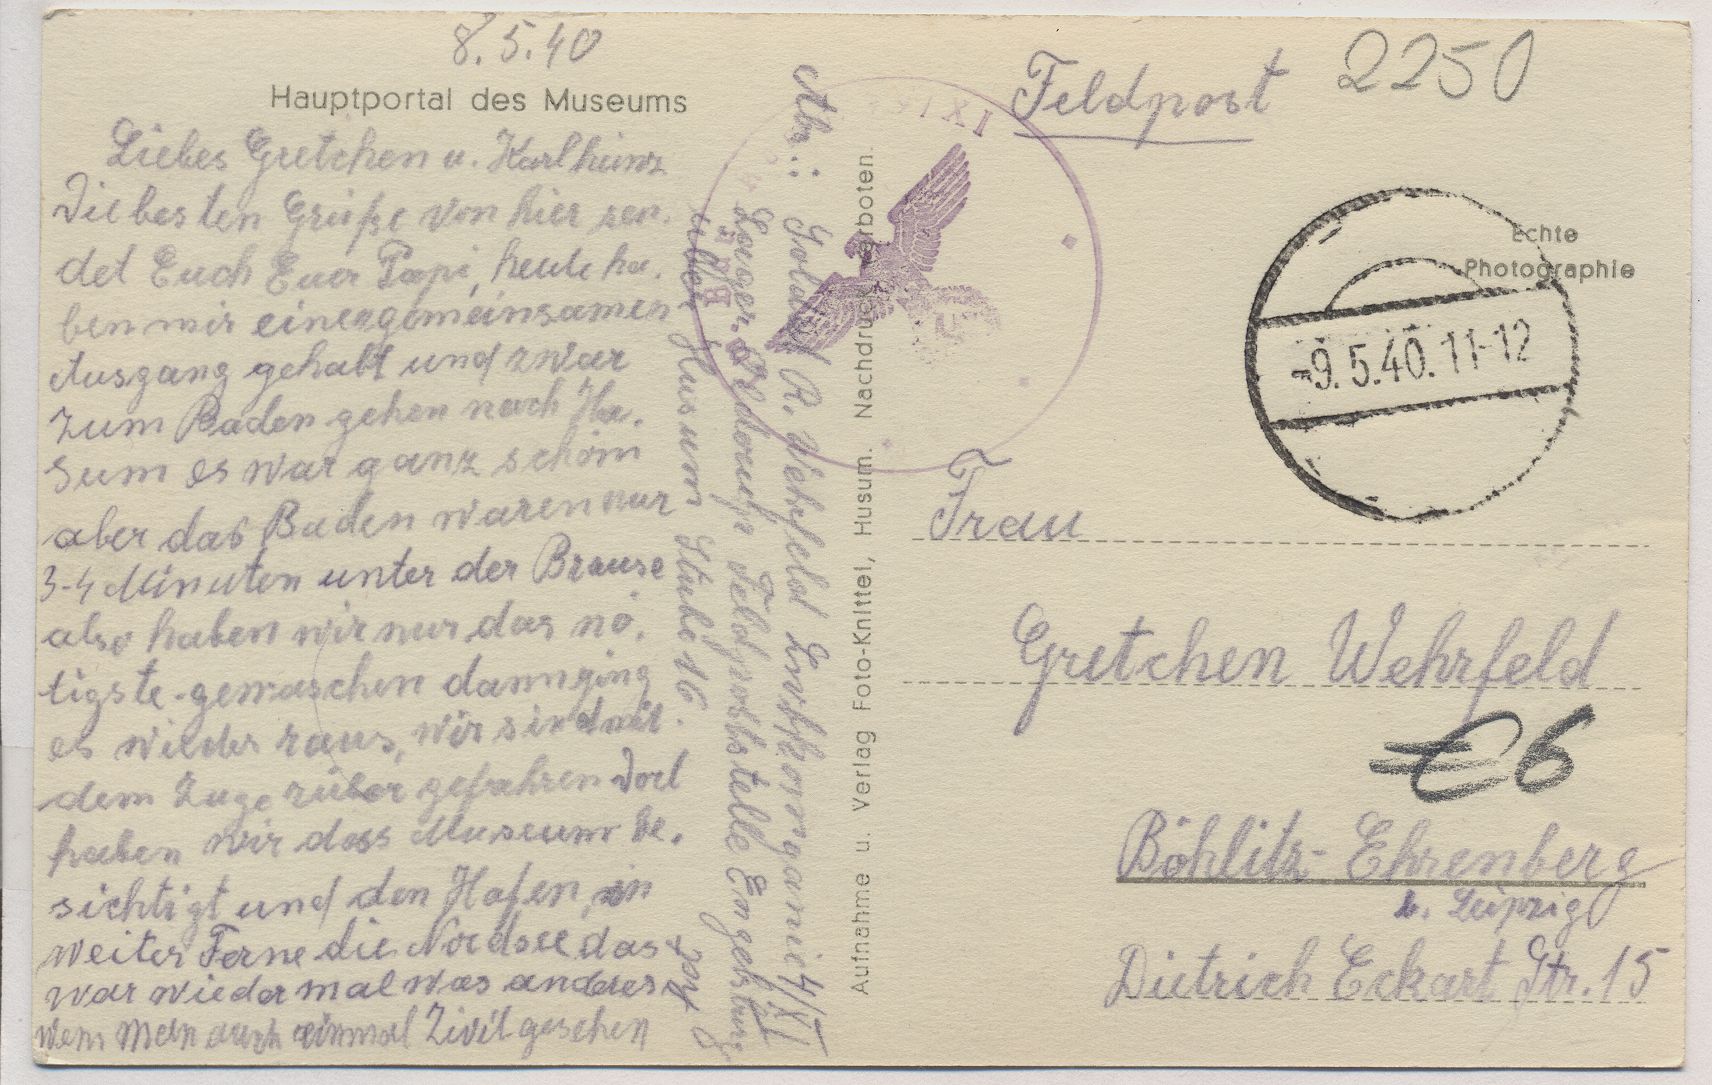 8.5.40
Hauptportal des Museums
Liebes Gretchen u. Karlheinz
Die besten Grüße von hier sen.
det Euch Euer Papi, heute ha.
ben wir einen gemeinsamen
Ausgang gehabt und zwar
zum Baden gehen nach Hu.
sum es war ganz schön
aber das Baden waren nur
3-4 Minuten unter der Brause
also haben wir nur das nö.
tigste gewaschen dann ging
es wieder raus, wir sind mit
dem Zuge rüber gefahren Dort
haben wir dass Museum be.
sichtigt und den Hafen, in
weiter Ferne die Nordsee das
war wieder mal was anderes
wenn man auch einmal Zivil gesehen
hat
Abs.: Soldat R. Wehrfeld 4/XI
Lager Feldpoststelle Engelsburg
über Husum Stube 16.
Aufnahme u. Verlag Foto-Knittel, Husum. Nachdruck verboten.
Feldpost
2250
Echte
Photographie
-9.5.40.11-12
Frau
Gretchen Wehrfeld
6
Böhlitz-Ehrenberg
b. Leipzig
Dietrich Eckart Str. 15